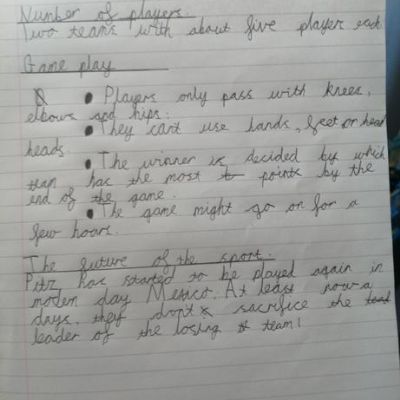 Number of players.
Two teams with about five player each
Game play
• Players only pass with knees,
elbows and hips.
• They can't use hands, feet or head
heads.
• The winner is decided by which
team has the most to points by the
end of the game.
• The game might go on for a
few hours.
The future of the sport.
Pitz has started to be played again in
modern day Mexico. At least now a
days, they don't sacrifice the
leader of the losing team!